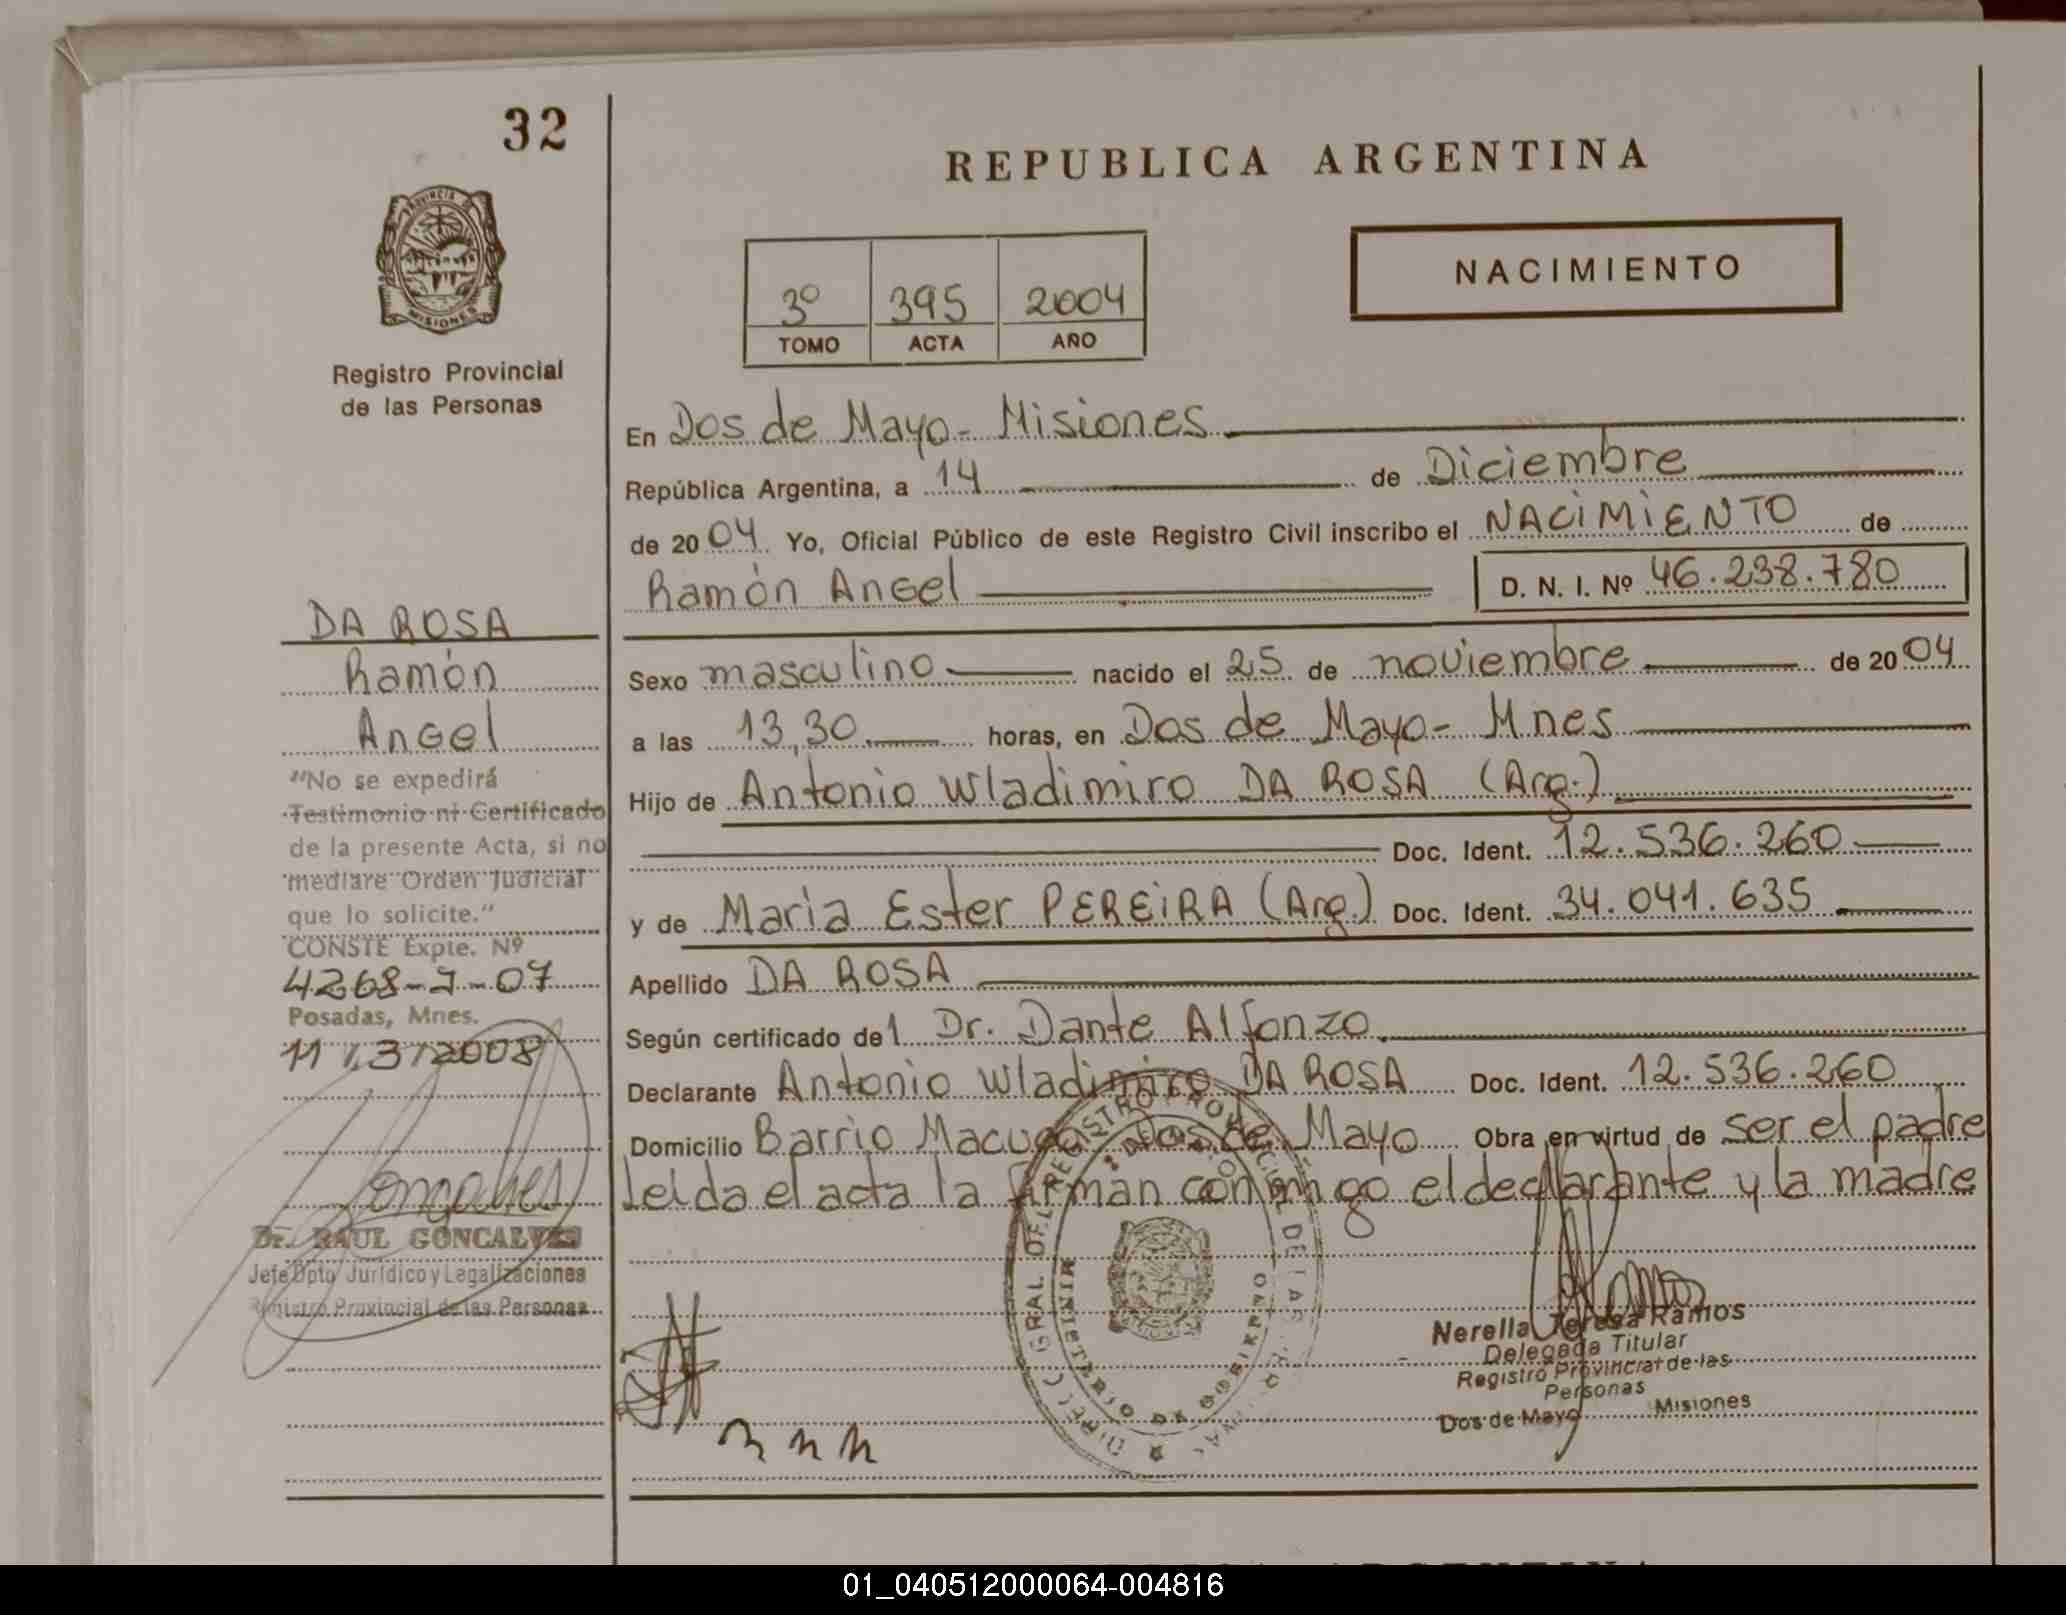 32
PROVINCIA DE
MISIONES
Registro Provincial
de las Personas
DA ROSA
Ramón
Angel
"No se expedirá
Testimonio ni Certificado
de la presente Acta, si no
mediare Orden Judicial
que lo solicite."
CONSTE Expte. Nº
4268-J-07
Posadas, Mnes.
11 / 3 / 2008
Dr. RAUL GONCALVES
Jefe Dpto Jurídico y Legalizaciones
Registro Provincial de las Personas
REPUBLICA ARGENTINA
3º 395 2004
TOMO ACTA AÑO
NACIMIENTO
En Dos de Mayo - Misiones
República Argentina, a 14 de Diciembre
de 2004 Yo, Oficial Público de este Registro Civil inscribo el NACIMIENTO de
Ramón Angel D. N. I. Nº 46.238.780
Sexo masculino nacido el 25 de noviembre de 2004
a las 13,30 horas, en Dos de Mayo - Mnes
Hijo de Antonio Wladimiro DA ROSA (Arg.)
Doc. Ident. 12.536.260
y de Maria Ester PEREIRA (Arg.) Doc. Ident. 34.041.635
Apellido DA ROSA
Según certificado del Dr. Dante Alfonzo
Declarante Antonio Wladimiro DA ROSA Doc. Ident. 12.536.260
Domicilio Barrio Macuco Dos de Mayo Obra en virtud de ser el padre
leida el acta la firman conmigo el declarante y la madre
Nerella Teresa Ramos
Delegada Titular
Registro Provincial de las
Personas
Dos de Mayo Misiones
MINISTERIO DE GOBIERNO
01_040512000064-004816